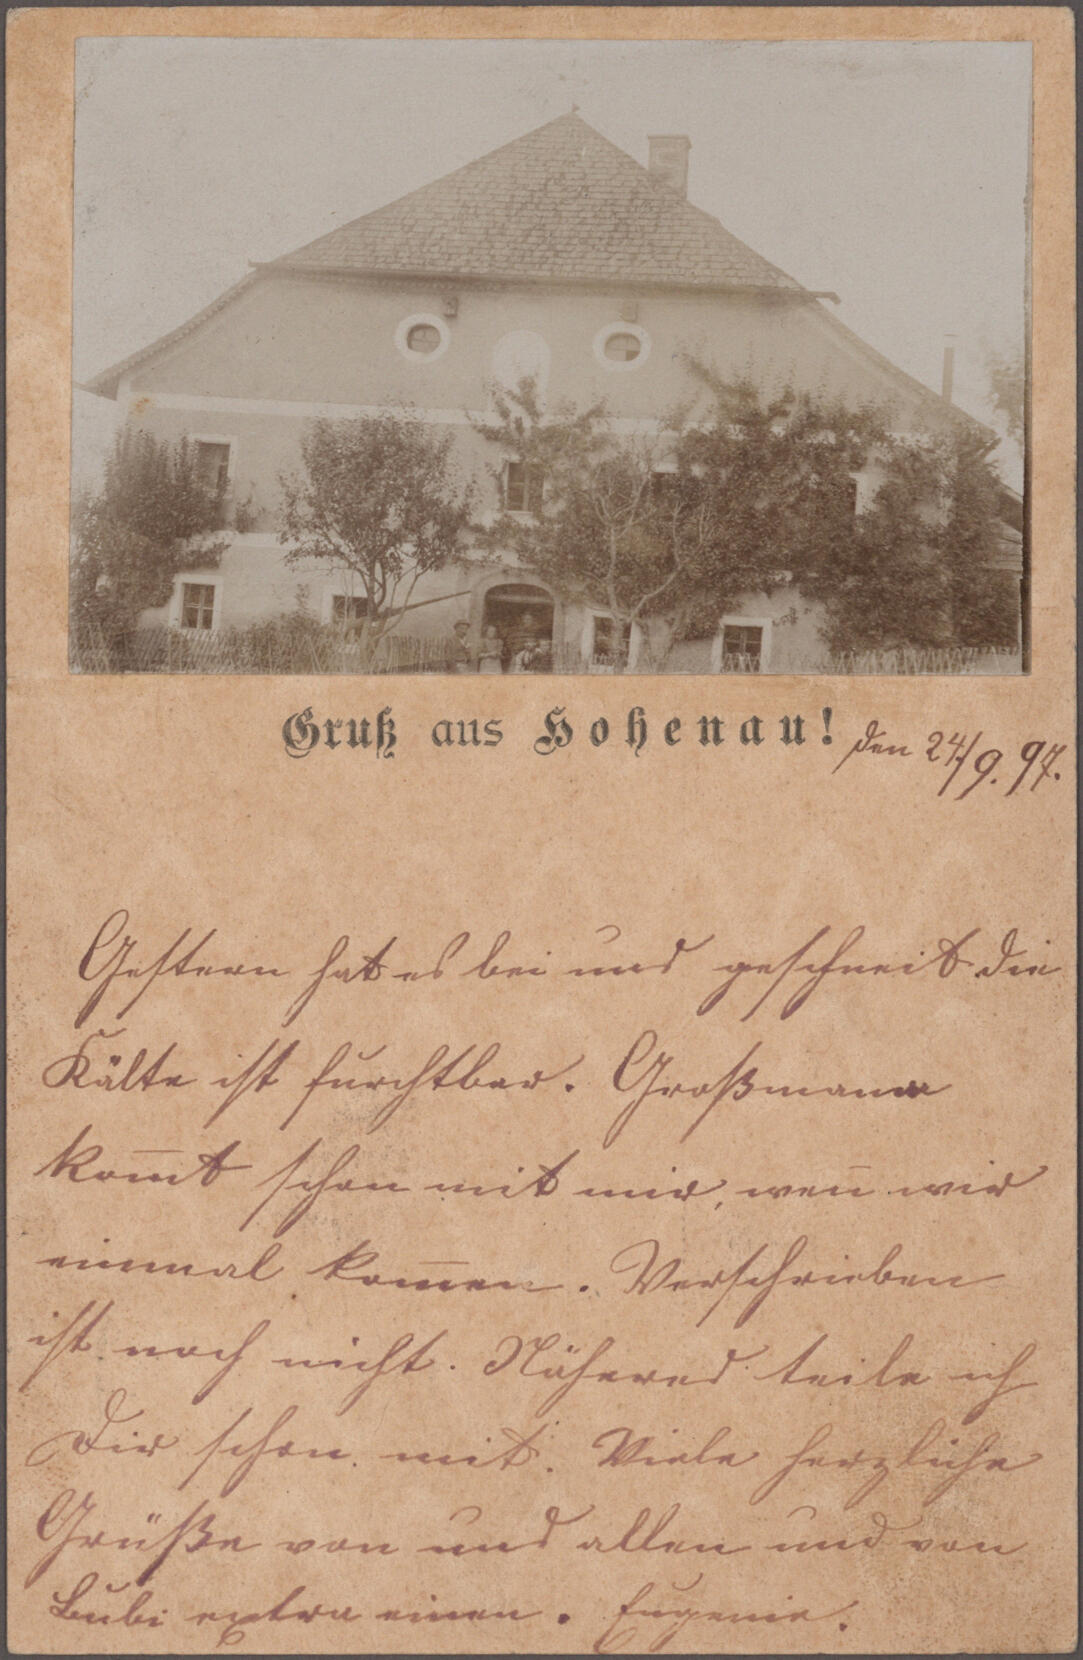 Gruß aus Hohenau! den 24./9. 97.
Gestern hat es bei uns geschneit die
Kälte ist furchtbar. Großmama
kom̅t schon mit mir, wen̅ wir
einmal kom̅en. Verschrieben
ist noch nicht. Näheres teile ich
Dir schon mit. Viele herzliche
Grüße von uns allen und von
Bubi extra einen. Eugenie.